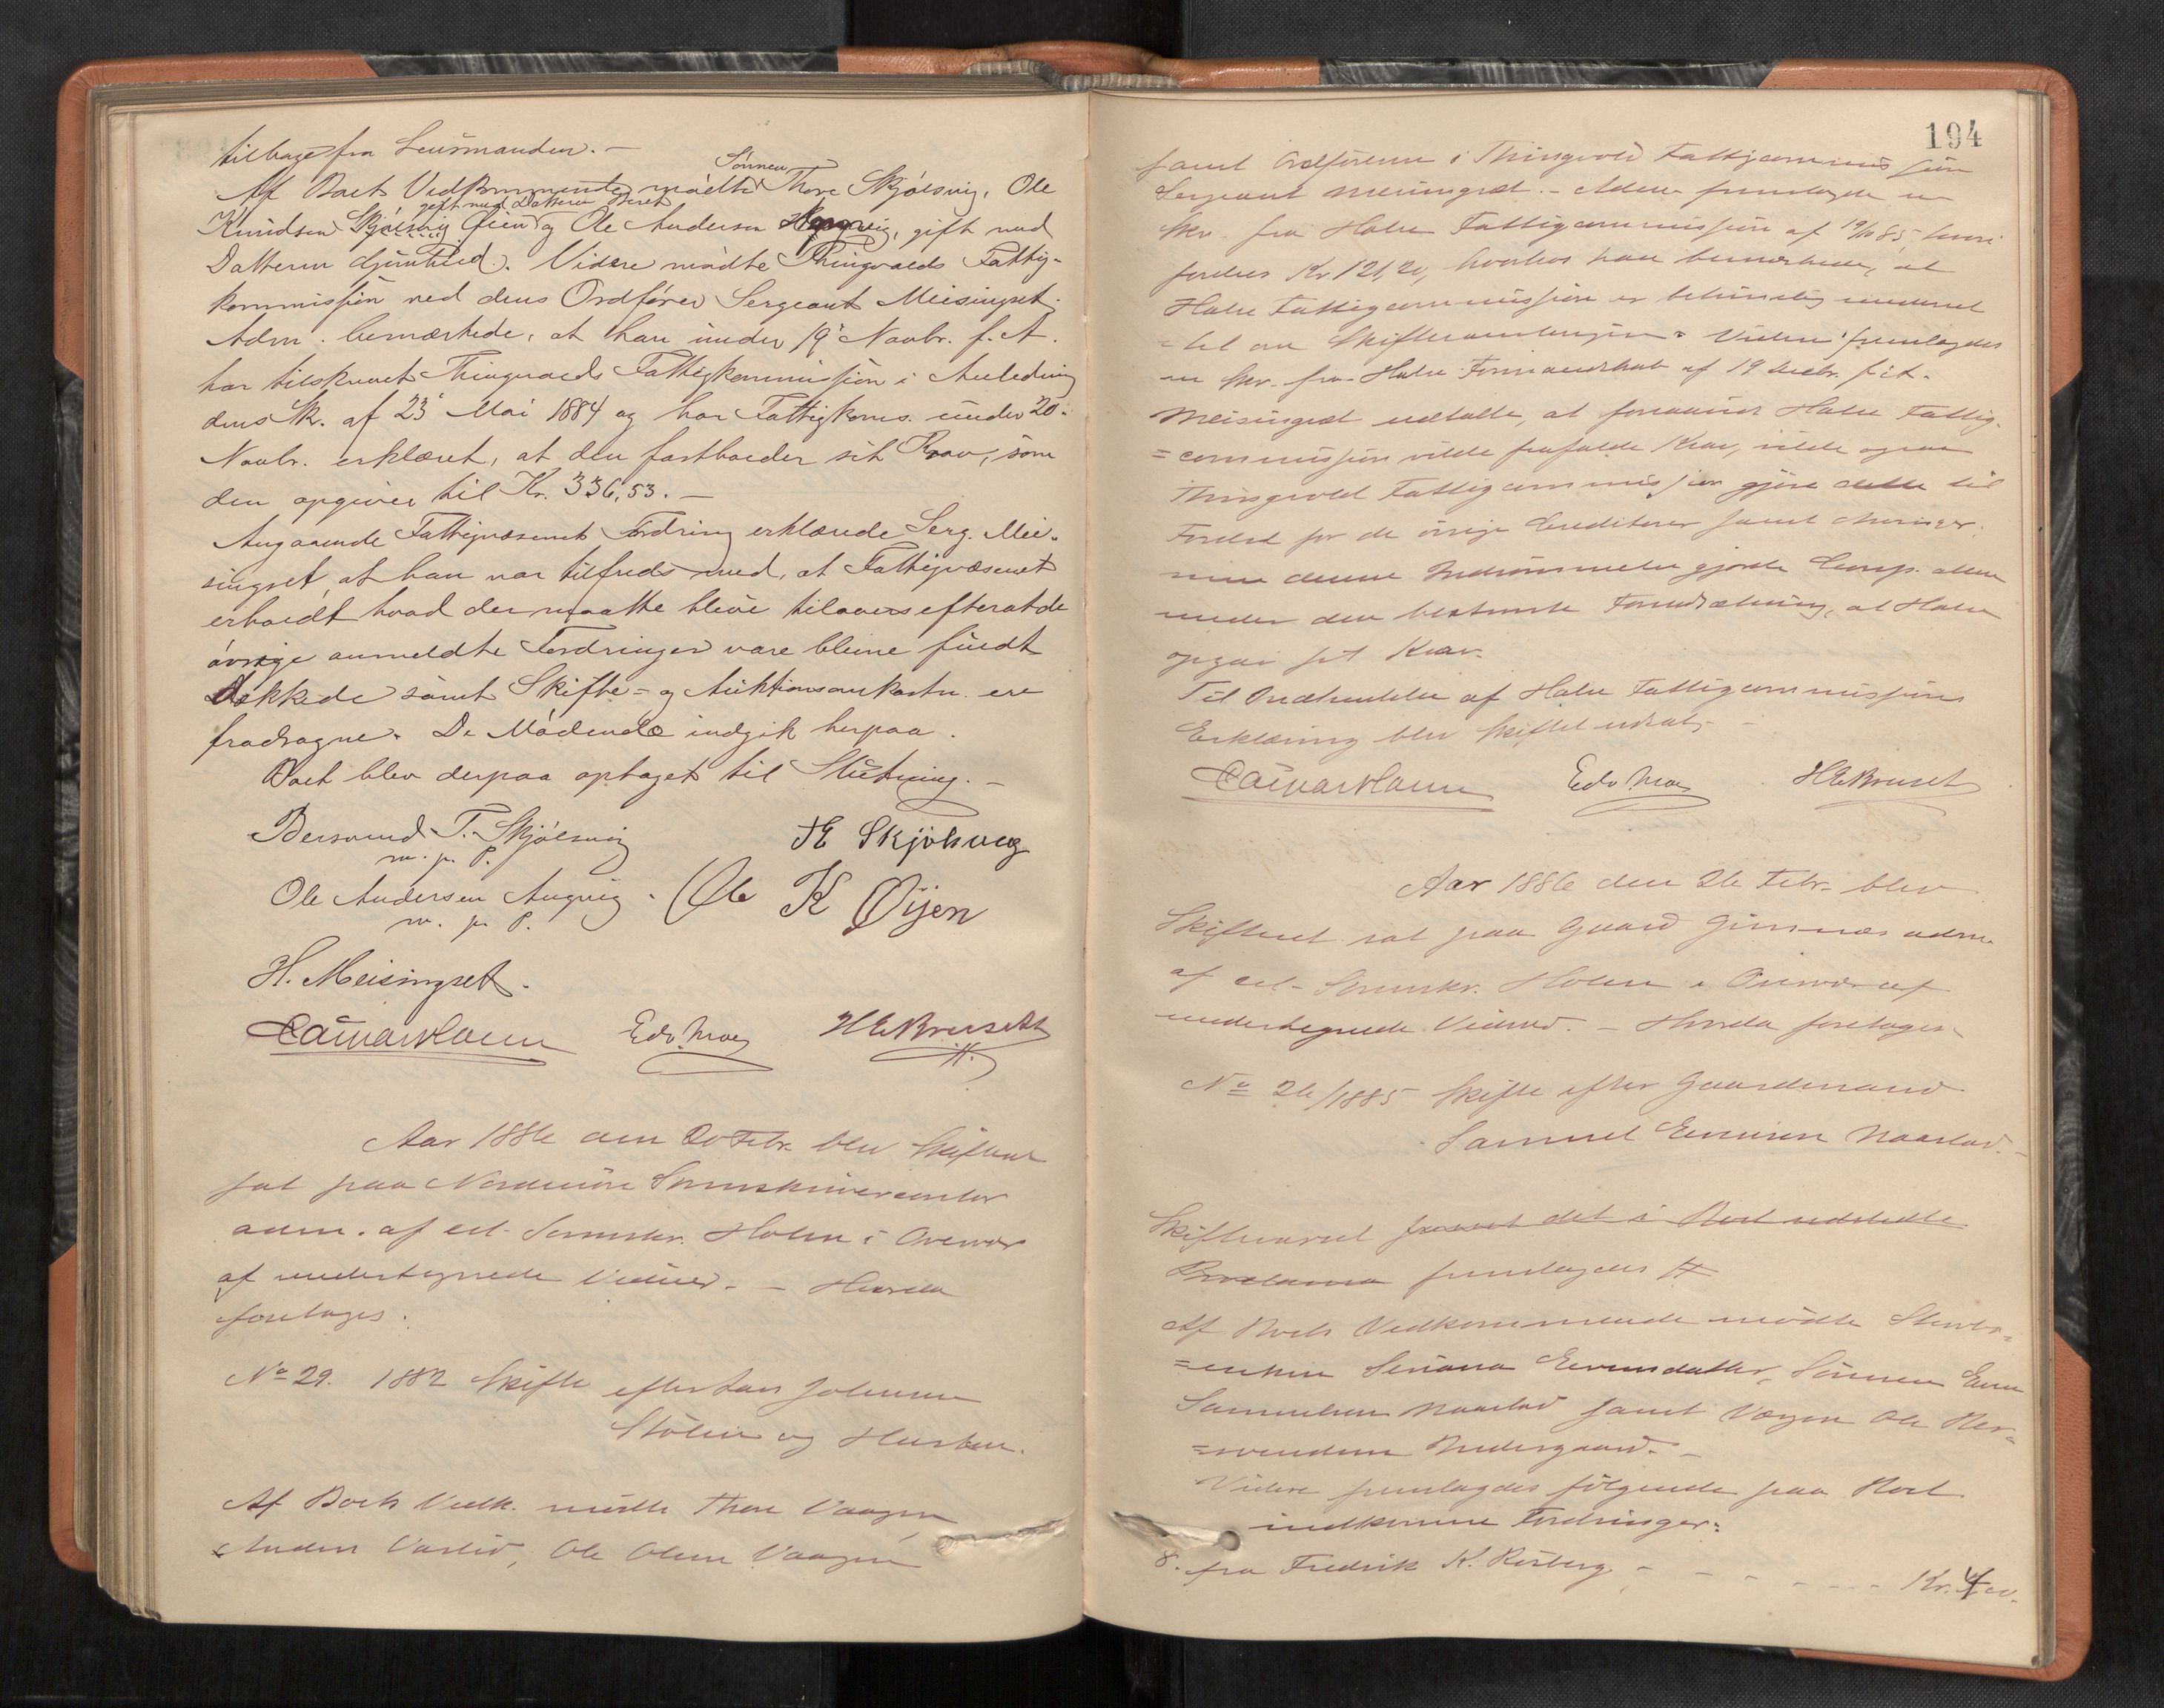 tilbage fra Lensmanden. –
Af Boets Vedkommende mødte Sønnen Thore Skjølsvig, Ole
Knudsen Skjølsvig Øien gift med Datteren Beret og Ole Andersen, gift med
Datteren. Videre mødte Thingvolds Fattig-
kommission ved dens Ordfører Sergeant Meisingset.
Adm. bemærkede, at han under 19 Novbr. f. A.
har tilskrevet Thingvolds Fattigkommission i Anledning
dens Skr. af 23 Mai 1884 og har Fattigkoms. under 20.
Novbr. erklæret, at den fastholder sit Krav, som
den opgiver til Kr. 336,53. –
Angaaende Fattigvæsenets Fordring erklærede Serg. Mei-
singset, at han var tilfreds med, at Fattigvæsenet
erholdt hvad der maatte blive tilovers efterat de
øvrige anmeldte Fordringer vare blevne fuldt
dækkede samt Skifte- og Auktionsomkostn. ere
fradragne. De Mødende indgik herpaa.
Boet blev derpaa optaget til Slutning. –
Bersvend T. Skjølsvig
m. p. P.
T E Skjølsvig
Ole Andersen Angvig.
m. p. P.
Ole K Øijen
H. Meisingset.
Edv. Moe
H E Bruseth
Aar 1886 den 20 Febr. blev Skifteret
sat paa Nordmøre Sorenskrivercontor
adm. af cst. Sorenskr. Holm i Overvær
af undertegnede Vidner. – Hvorda
foretoges:
No 29. 1882 Skifte efter Lars Johnsen
Stølen og Hustru.
Af Boets Vedk. mødte Thore Vaagen
Anders, Ole Olsen Vaagen
194
samt Ordføreren i Thingvold Fattigcommission
Sergeant Meisingset. – Adm. fremlagde en
Skr. fra Halse Fattigcommission af 19/12 85, hvori
fordres Kr 121,20, hvorhos han bemærkede, at
Halse Fattigcommission er behørig underret
= tet om Skiftesamlingen. Videre fremlagdes
en Skr. fra Halse Formandskab af 19 Decbr. f. A.
Meisingset udtalte, at forsaavidt Halse Fattig-
= commission vilde frafalde Krav, vilde ogsaa
Thingvold Fattigcommission gjøre dette til
Fordel for de øvrige Creditorer samt Arvinger.
men denne Indrømmelse gjorde Comp. alene
under den bestemte Forudsætning, at Halse
opgav sit Krav.
Til Indhentelse af Halse Fattigcommissions
Erklæring blev Skiftet udsat. –
Edv. Moe
H E Bruset
Aar 1886 den 26 Febr. blev
Skifteret sat paa Gaard Gimnæs adm.
af cst. Sorenskr. Holm i Overvær af
undertegnede Vidner. – Hvorda foretoges
No 26/1885 Skifte efter Gaardmand
Samuel Evensen Naastad. –
Skiftevarsel samt det i Boet udstedte
Proclama fremlagdes
Af Boets Vedkommende mødte Stervbo-
= enken Seriana Evensdatter, Sønnen Even
Samuelsen Naastad samt Værgen Ole Ber-
= svendsen Nedergaard. –
Videre fremlagdes følgende paa Boet
indkomne Fordringer:
8. fra Fredrik K. Risberg - - - - - - Kr.